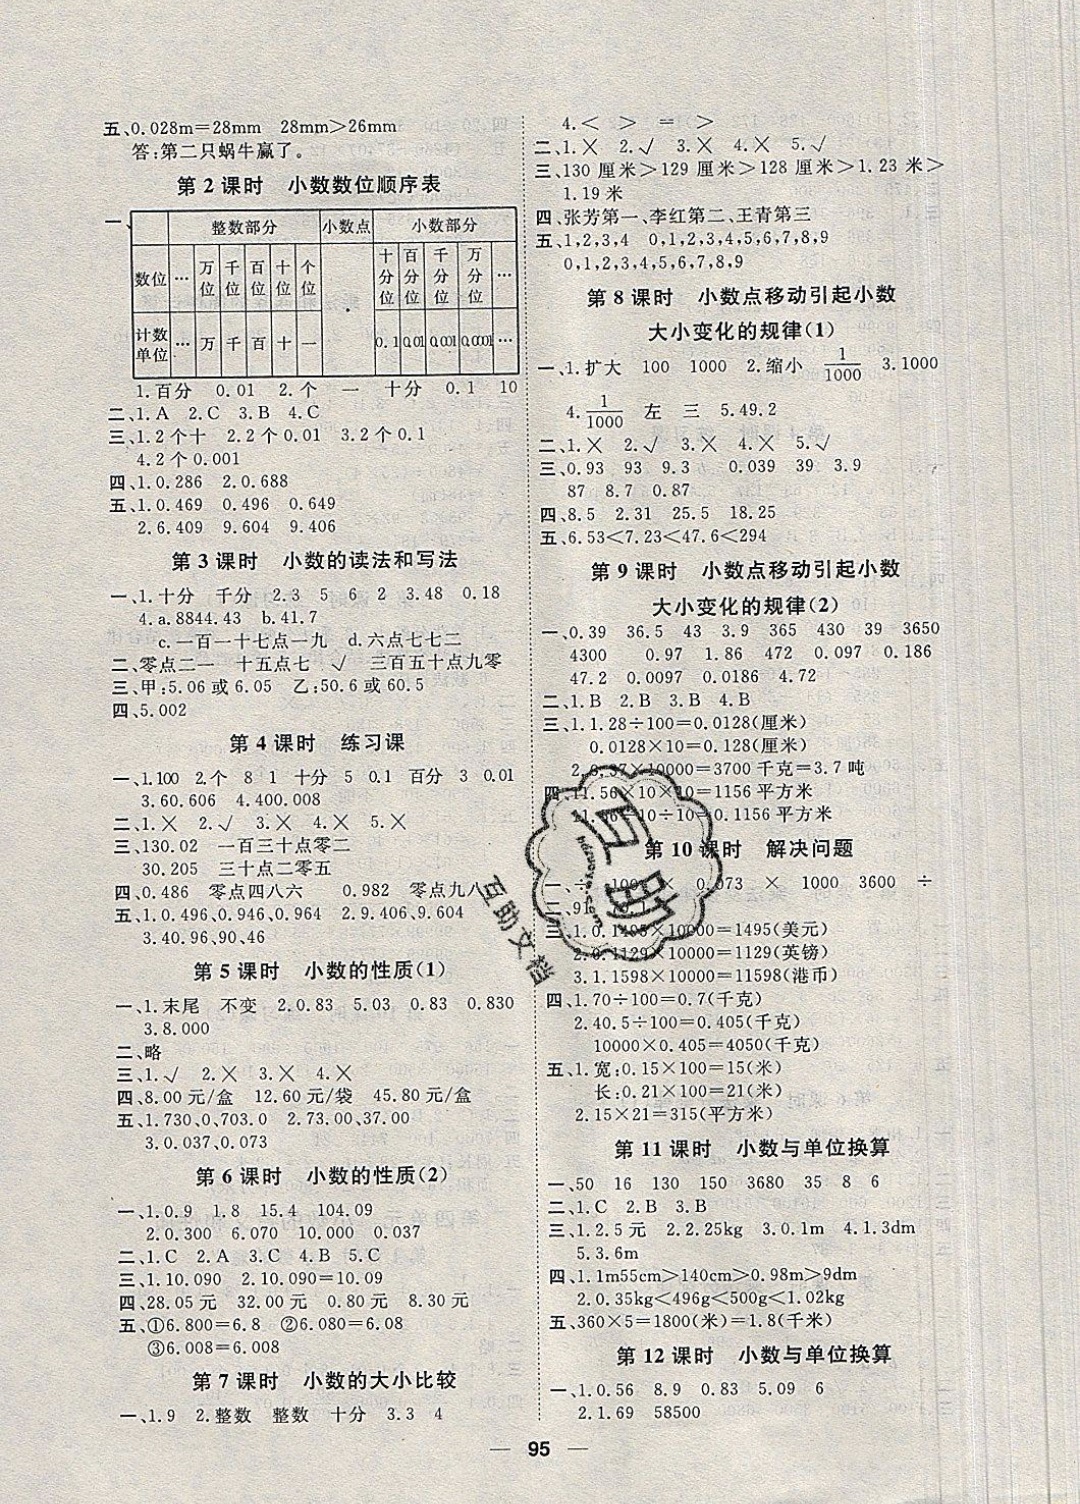 五、0.028m=28mm 28mm>26mm
答:第二只蜗牛赢了。
第2课时 小数数位顺序表
一、
整数部分 小数点 小数部分
数位 … 万位 千位 百位 十位 个位 · 十分位 百分位 千分位 万分位 …
计数单位 … 万 千 百 十 一 0.1 0.01 0.001 0.0001 …
1.百分 0.01 2.个 一 十分 0.1 10
二、1.A 2.C 3.B 4.C
三、1.2个十 2.2个0.01 3.2个0.1
4.2个0.001
四、1.0.286 2.0.688
五、1.0.469 0.496 0.649
2.6.409 9.604 9.406
第3课时 小数的读法和写法
一、1.十分 千分 2.3 5 6 2 3.48 0.18
4.a.8844.43 b.41.7
c.一百一十七点一九 d.六点七七二
二、零点二一 十五点七 √ 三百五十点九零
三、甲:5.06或6.05 乙:50.6或60.5
四、5.002
第4课时 练习课
一、1.100 2.个 8 1 十分 5 0.1 百分 3 0.01
3.60.606 4.400.008
二、1.× 2.√ 3.× 4.× 5.×
三、130.02 一百三十点零二
30.205 三十点二零五
四、0.486 零点四八六 0.982 零点九八
五、1.0.496、0.946、0.964 2.9.406、9.604
3.40.96、90、46
第5课时 小数的性质(1)
一、1.末尾 不变 2.0.83 5.03 0.83 0.830
3.8.000
二、略
三、1.√ 2.× 3.× 4.×
四、8.00元/盒 12.60元/袋 45.80元/盒
五、1.730.0、703.0 2.73.00、37.00
3.0.037、0.073
第6课时 小数的性质(2)
一、1.0.9 1.8 15.4 104.09
2.0.300 6.070 10.000 0.037
二、1.C 2.A 3.C 4.B 5.C
三、1.10.090 2.10.090=10.09
四、28.05元 32.00元 0.80元 8.30元
五、①6.800=6.8 ②6.080=6.08
③6.008=6.008
第7课时 小数的大小比较
一、1.9 2.整数 整数 十分 3.3 4
4.< > = >
二、1.× 2.√ 3.× 4.× 5.√
三、130厘米>129厘米>128厘米>1.23米>
1.19米
四、张芳第一、李红第二、王青第三
五、1,2,3,4 0,1,2,3,4,5,6,7,8,9
0,1,2,3,4,5,6,7,8,9
第8课时 小数点移动引起小数
大小变化的规律(1)
一、1.扩大 100 1000 2.缩小 1/1000 3.1000
4.1/1000 左 三 5.49.2
二、1.× 2.√ 3.× 4.× 5.√
三、0.93 93 9.3 0.039 39 3.9
87 8.7 0.87
四、8.5 2.31 25.5 18.25
五、6.53<7.23<47.6<294
第9课时 小数点移动引起小数
大小变化的规律(2)
一、0.39 36.5 43 3.9 365 430 39 3650
4300 0.97 1.86 472 0.097 0.186
47.2 0.0097 0.0186 4.72
二、1.B 2.B 3.B 4.B
三、1.1.28÷100=0.0128(厘米)
0.0128×10=0.128(厘米)
2.0.37×10000=3700千克=3.7吨
四、11.56×10×10=1156平方米
11.56÷10÷10=0.1156平方米
第10课时 解决问题
一、÷ 100 × 0.073 × 1000 3600 ÷
二、91
三、1.0.1495×10000=1495(美元)
2.0.1129×10000=1129(英镑)
3.1.1598×10000=11598(港币)
四、1.70÷100=0.7(千克)
2.40.5÷100=0.405(千克)
10000×0.405=4050(千克)
五、1.宽:0.15×100=15(米)
长:0.21×100=21(米)
2.15×21=315(平方米)
第11课时 小数与单位换算
一、50 16 130 150 3680 35 8 6
二、1.C 2.B 3.B
三、1.2.5元 2.2.25kg 3.0.1m 4.1.3dm
5.3.6m
四、1.1m55cm>140cm>0.98m>9dm
2.0.35kg<496g<500g<1.02kg
五、360×5=1800(米)=1.8(千米)
第12课时 小数与单位换算
一、1.0.56 8.9 0.83 5.09 6
2.1.69 58500
互助
互助文档
— 95 —